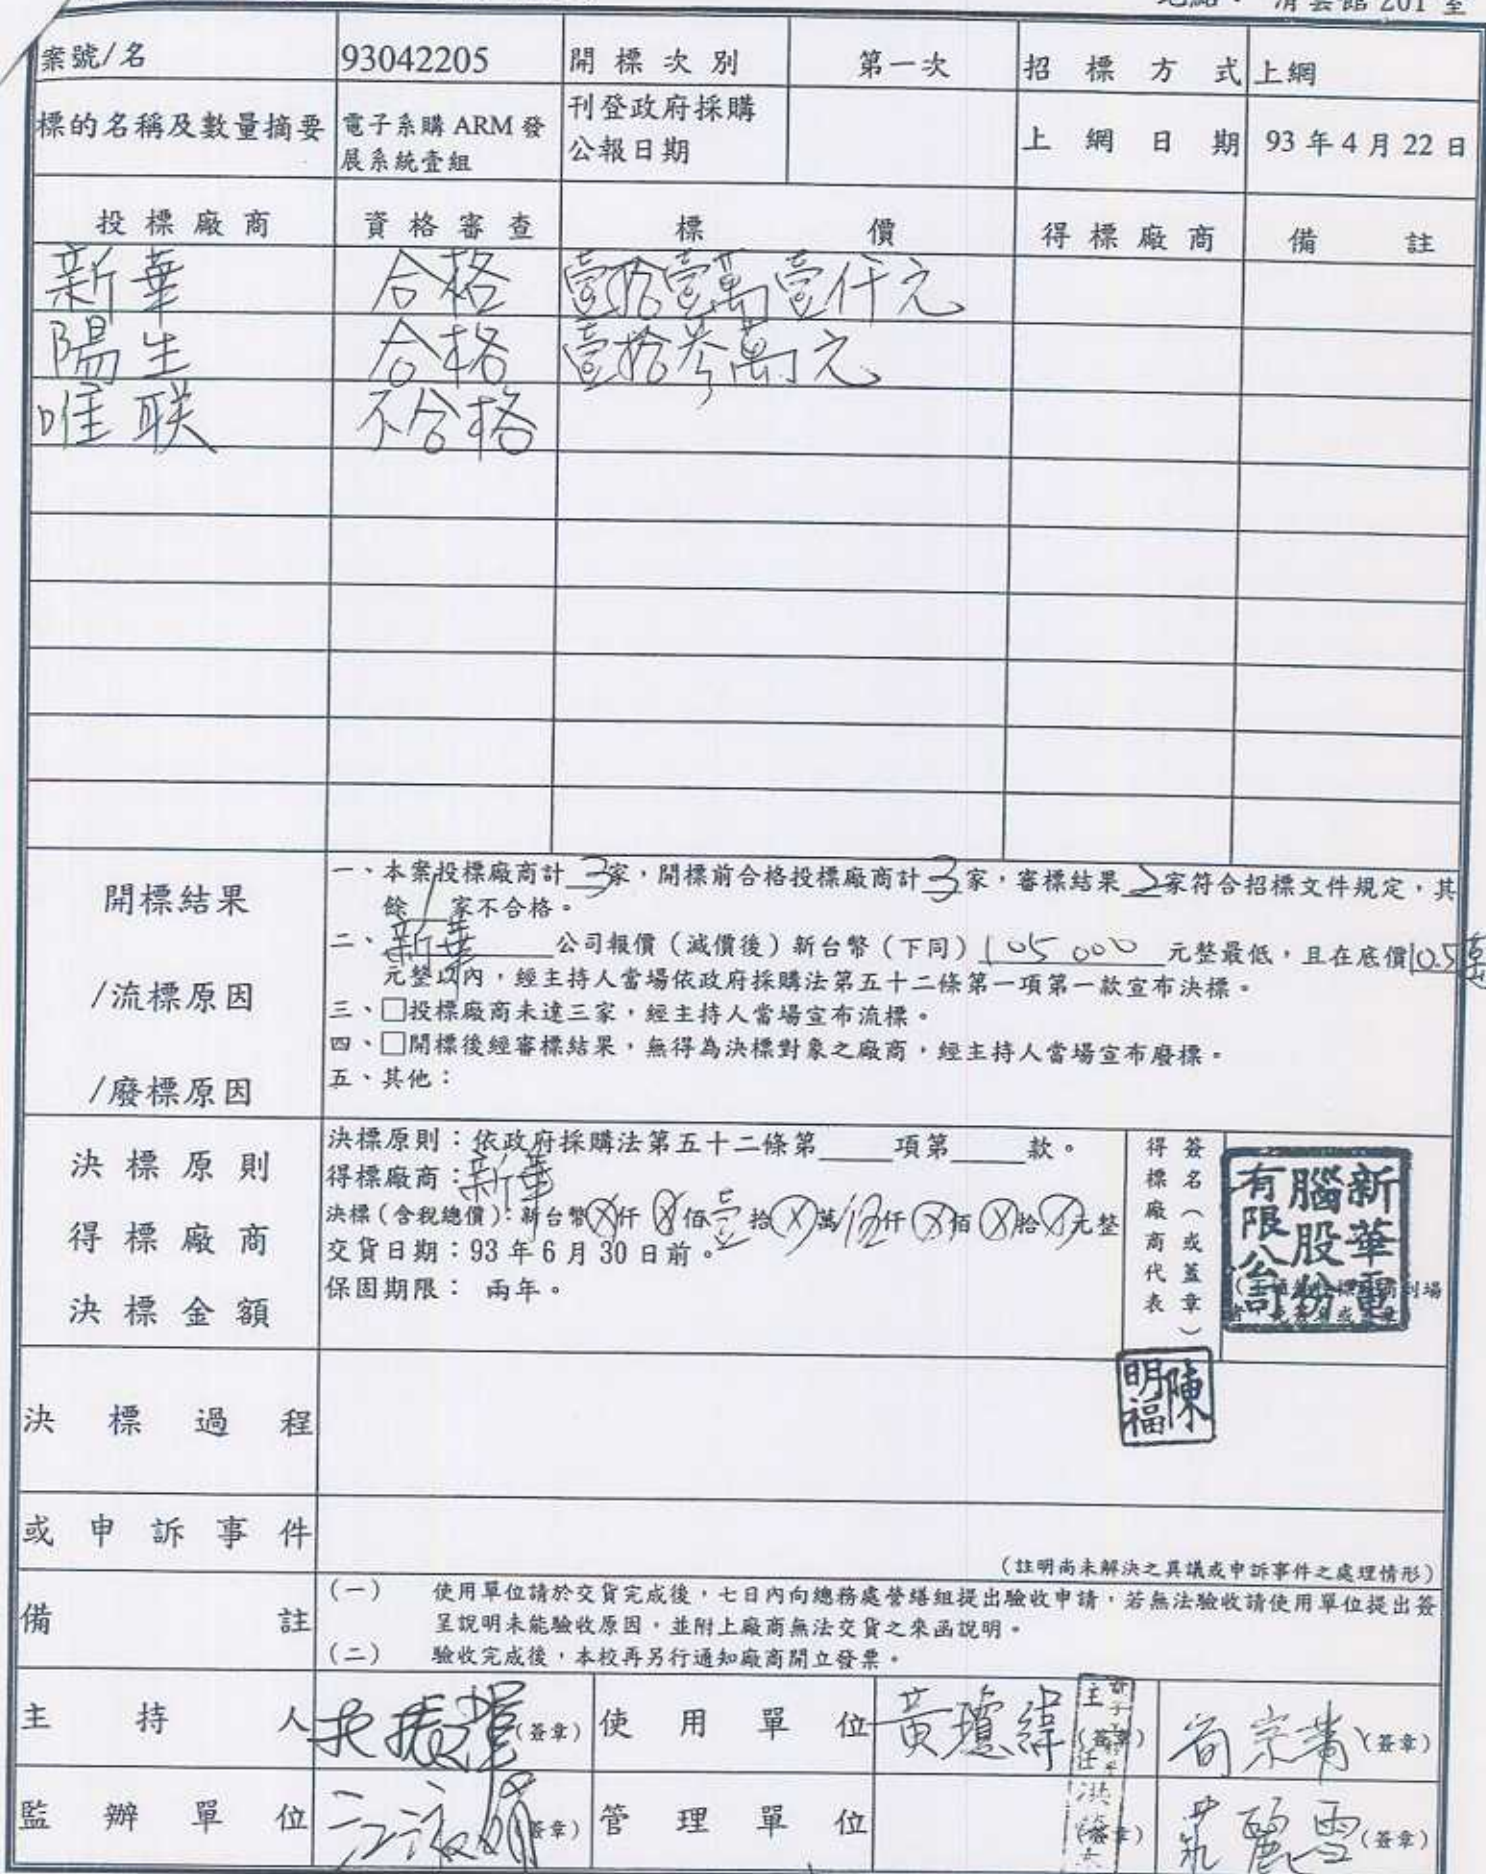 地點： 清雲館 201 室
案號/名 93042205 開標次別 第一次 招標方式 上網
標的名稱及數量摘要 電子系購 ARM 發展系統壹組 刊登政府採購公報日期 上網日期 93 年 4 月 22 日
投標廠商 資格審查 標價 得標廠商 備註
新華 合格 壹拾壹萬壹仟元
陽生 合格 壹拾參萬元
唯联 不合格
開標結果
/流標原因
/廢標原因
一、本案投標廠商計 3 家，開標前合格投標廠商計 3 家，審標結果 2 家符合招標文件規定，其
餘 1 家不合格。
二、新華 公司報價（減價後）新台幣（下同）105000 元整最低，且在底價10.5萬
元整以內，經主持人當場依政府採購法第五十二條第一項第一款宣布決標。
三、□投標廠商未達三家，經主持人當場宣布流標。
四、□開標後經審標結果，無得為決標對象之廠商，經主持人當場宣布廢標。
五、其他：
決標原則
得標廠商
決標金額
決標原則：依政府採購法第五十二條第____項第____款。
得標廠商：新華
決標(含稅總價)：新台幣Ⓧ仟Ⓧ佰壹拾Ⓧ萬伍仟Ⓧ佰Ⓧ拾Ⓧ元整
交貨日期：93 年 6 月 30 日前。
保固期限： 兩年。
得標廠商代表
簽名（或蓋章）
新華電
腦股份
有限公司
陳
明福
決標過程
或申訴事件
（註明尚未解決之異議或申訴事件之處理情形）
備註
（一） 使用單位請於交貨完成後，七日內向總務處營繕組提出驗收申請，若無法驗收請使用單位提出簽
呈說明未能驗收原因，並附上廠商無法交貨之來函說明。
（二） 驗收完成後，本校再另行通知廠商開立發票。
主持人 (簽章) 使用單位 黃瓊緯 (簽章) (簽章)
監辦單位 (簽章) 管理單位 (簽章) 麗雪 (簽章)